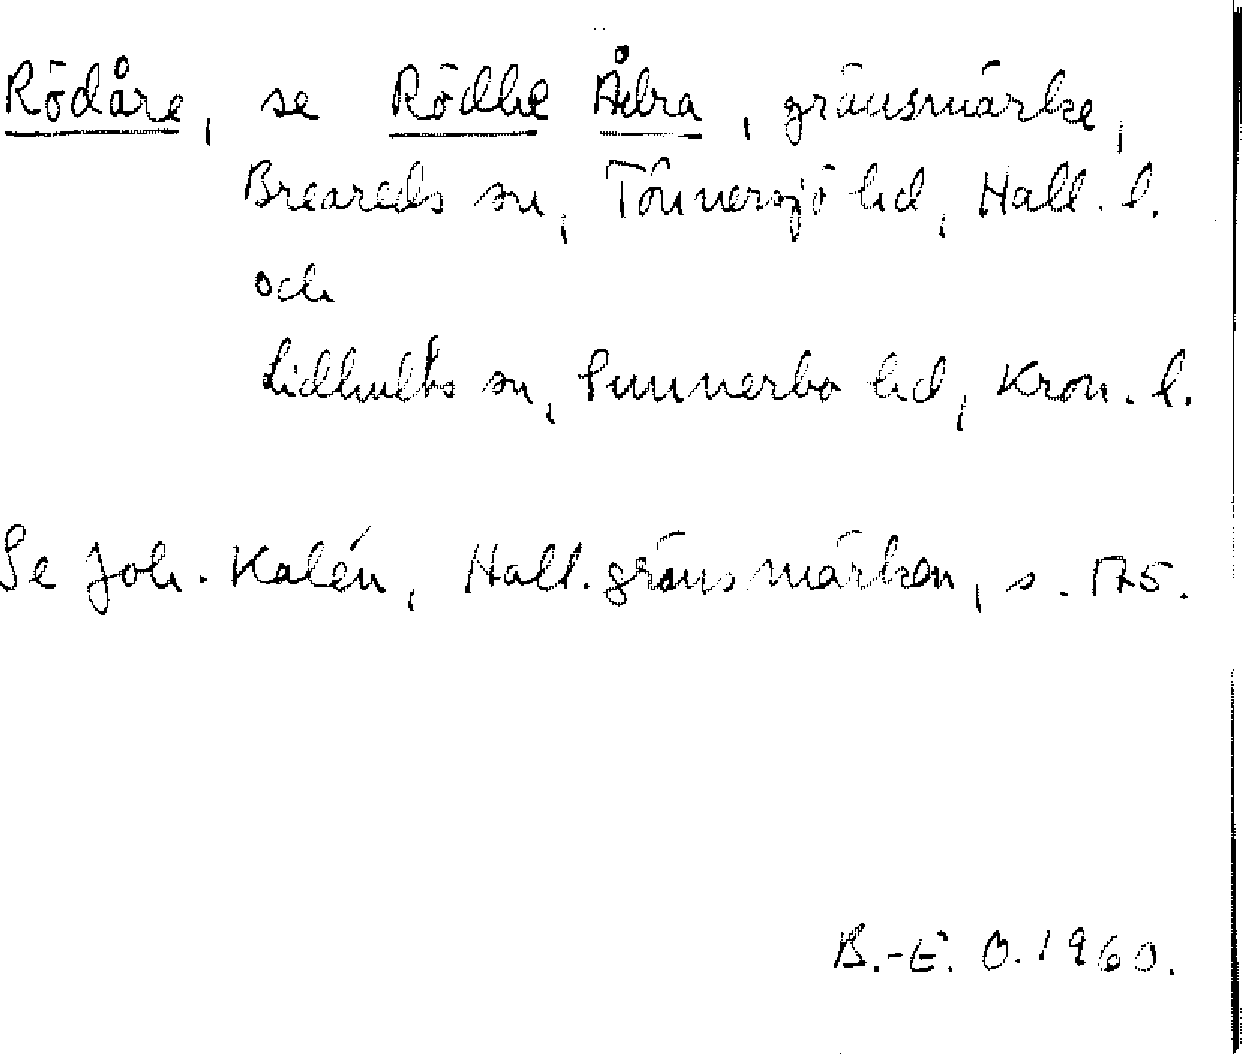 Rödåre, se Rödhe Ådra, gränsmärke,
Breareds sn, Tönnersjö hd, Hall. l.
och
Lidhults sn, Sunnerbo hd, Kron. l.
Se Joh. Kalén, Hall. gränsmärken, s. 175.
B.-E. O. 1960.